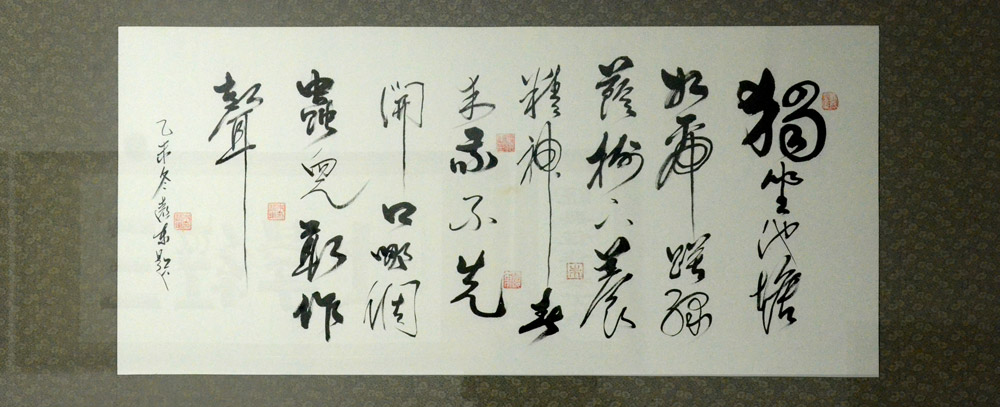 獨坐池塘
如虎踞綠
蔭樹下養
精神春
来我不先
開口哪個
蟲兒敢作
聲
乙未冬